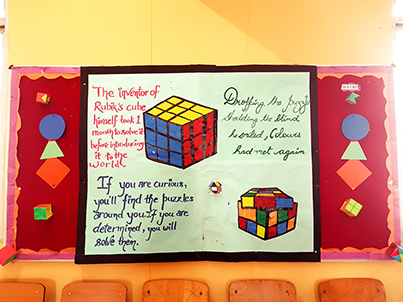 The inventor of
Rubik's cube
himself took 1
month to solve it
before introducing
it to the
world.
Dropping the puzzle
the blind
Colours
had met again
If you are curious,
you'll find the puzzles
around you. If you are
determined, you will
solve them.